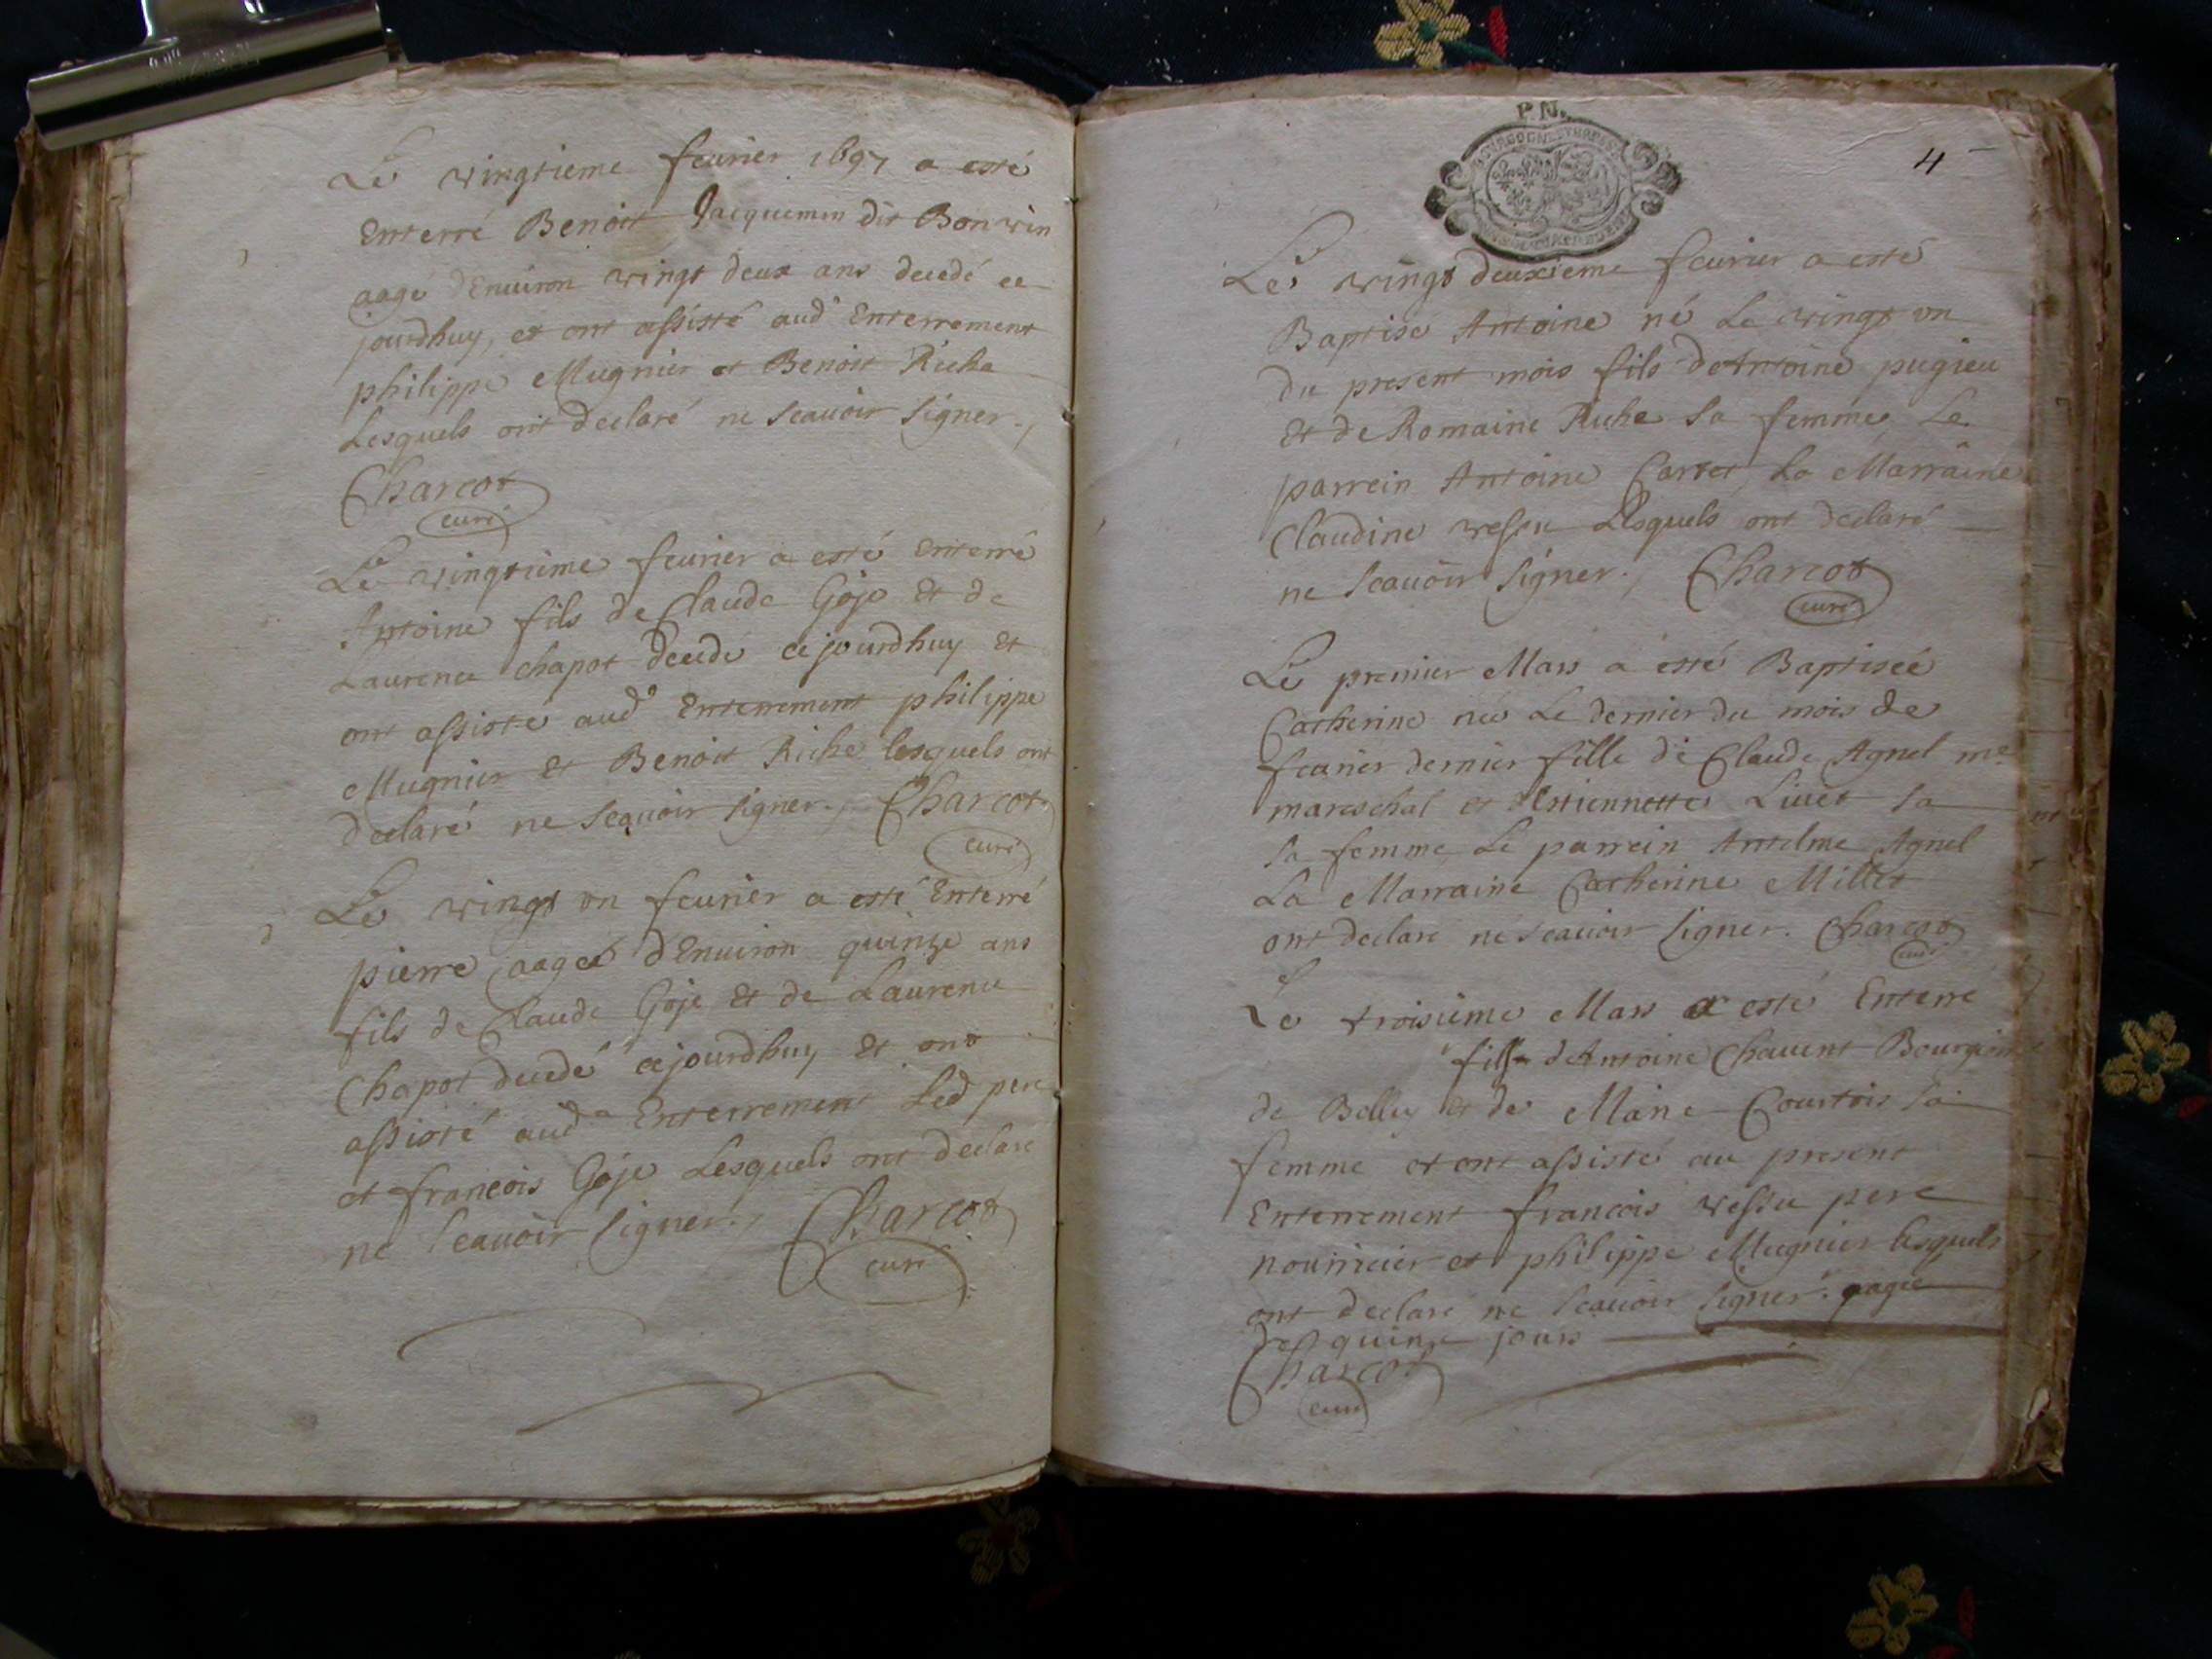 Le vingtieme feurier 1697 a esté
Enterré Benoit Jacquemin dit Bonvin
aagé dEnuiron vingt deux ans decedé ce
jourdhuy, et ont assisté aud Enterrement
philippe Mugnier et Benoit Riche
Lesquels ont declaré ne scauoir signer.
Charcot
curé
Le vingtieme feurier a esté Enterré
Antoine fils de Claude Goje Et de
Laurence Chapot decedé cejourdhuy Et
ont assisté aud Enterrement philippe
Mugnier Et Benoit Riche lesquels ont
declaré ne scauoir signer. Charcot
curé
Le vingt vn feurier a esté Enterré
pierre aagé dEnuiron quinze ans
fils de Claude Goje Et de Laurence
Chapot decedé cejourdhuy Et ont
assisté aud Enterrement Led pere
et francois Goje Lesquels ont declaré
ne scauoir signer. Charcot
curé
P. N.
4
Le vingt deuxieme feurier a esté
Baptisé Antoine né Le vingt vn
du present mois fils deAntoine pugieu
Et de Romaine Riche sa femme Le
parrein Antoine Carret La Marraine
Claudine vessu Lesquels ont declaré
ne scauoir signer. Charcot
curé
Le premier Mars a esté Baptiseé
Catherine neé Le dernier du mois de
feurier dernier fille de Claude Agnel me
mareschal et Estiennette Liuet sa
sa femme Le parrein Antelme Agnel
La Marraine Catherine Millet
ont declaré ne scauoir signer. Charcot
curé
Le troisieme Mars a esté Enterré
fille deAntoine Chauent Bourgeois
de Belley Et de Marie Courtois sa
femme et ont assisté au present
Enterrement francois vessu pere
nourricier et philippe Mugnier lesquels
ont declaré ne scauoir signer. aagée
de quinze jours
Charcot
curé